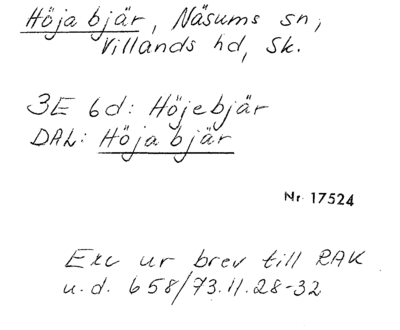 Höja bjär, Näsums sn,
Villands hd, Sk.
3E 6d: Höjebjär
DAL: Höja bjär
Nr 17524
Exc ur brev till RAK
u.d. 658/73.11.28-32